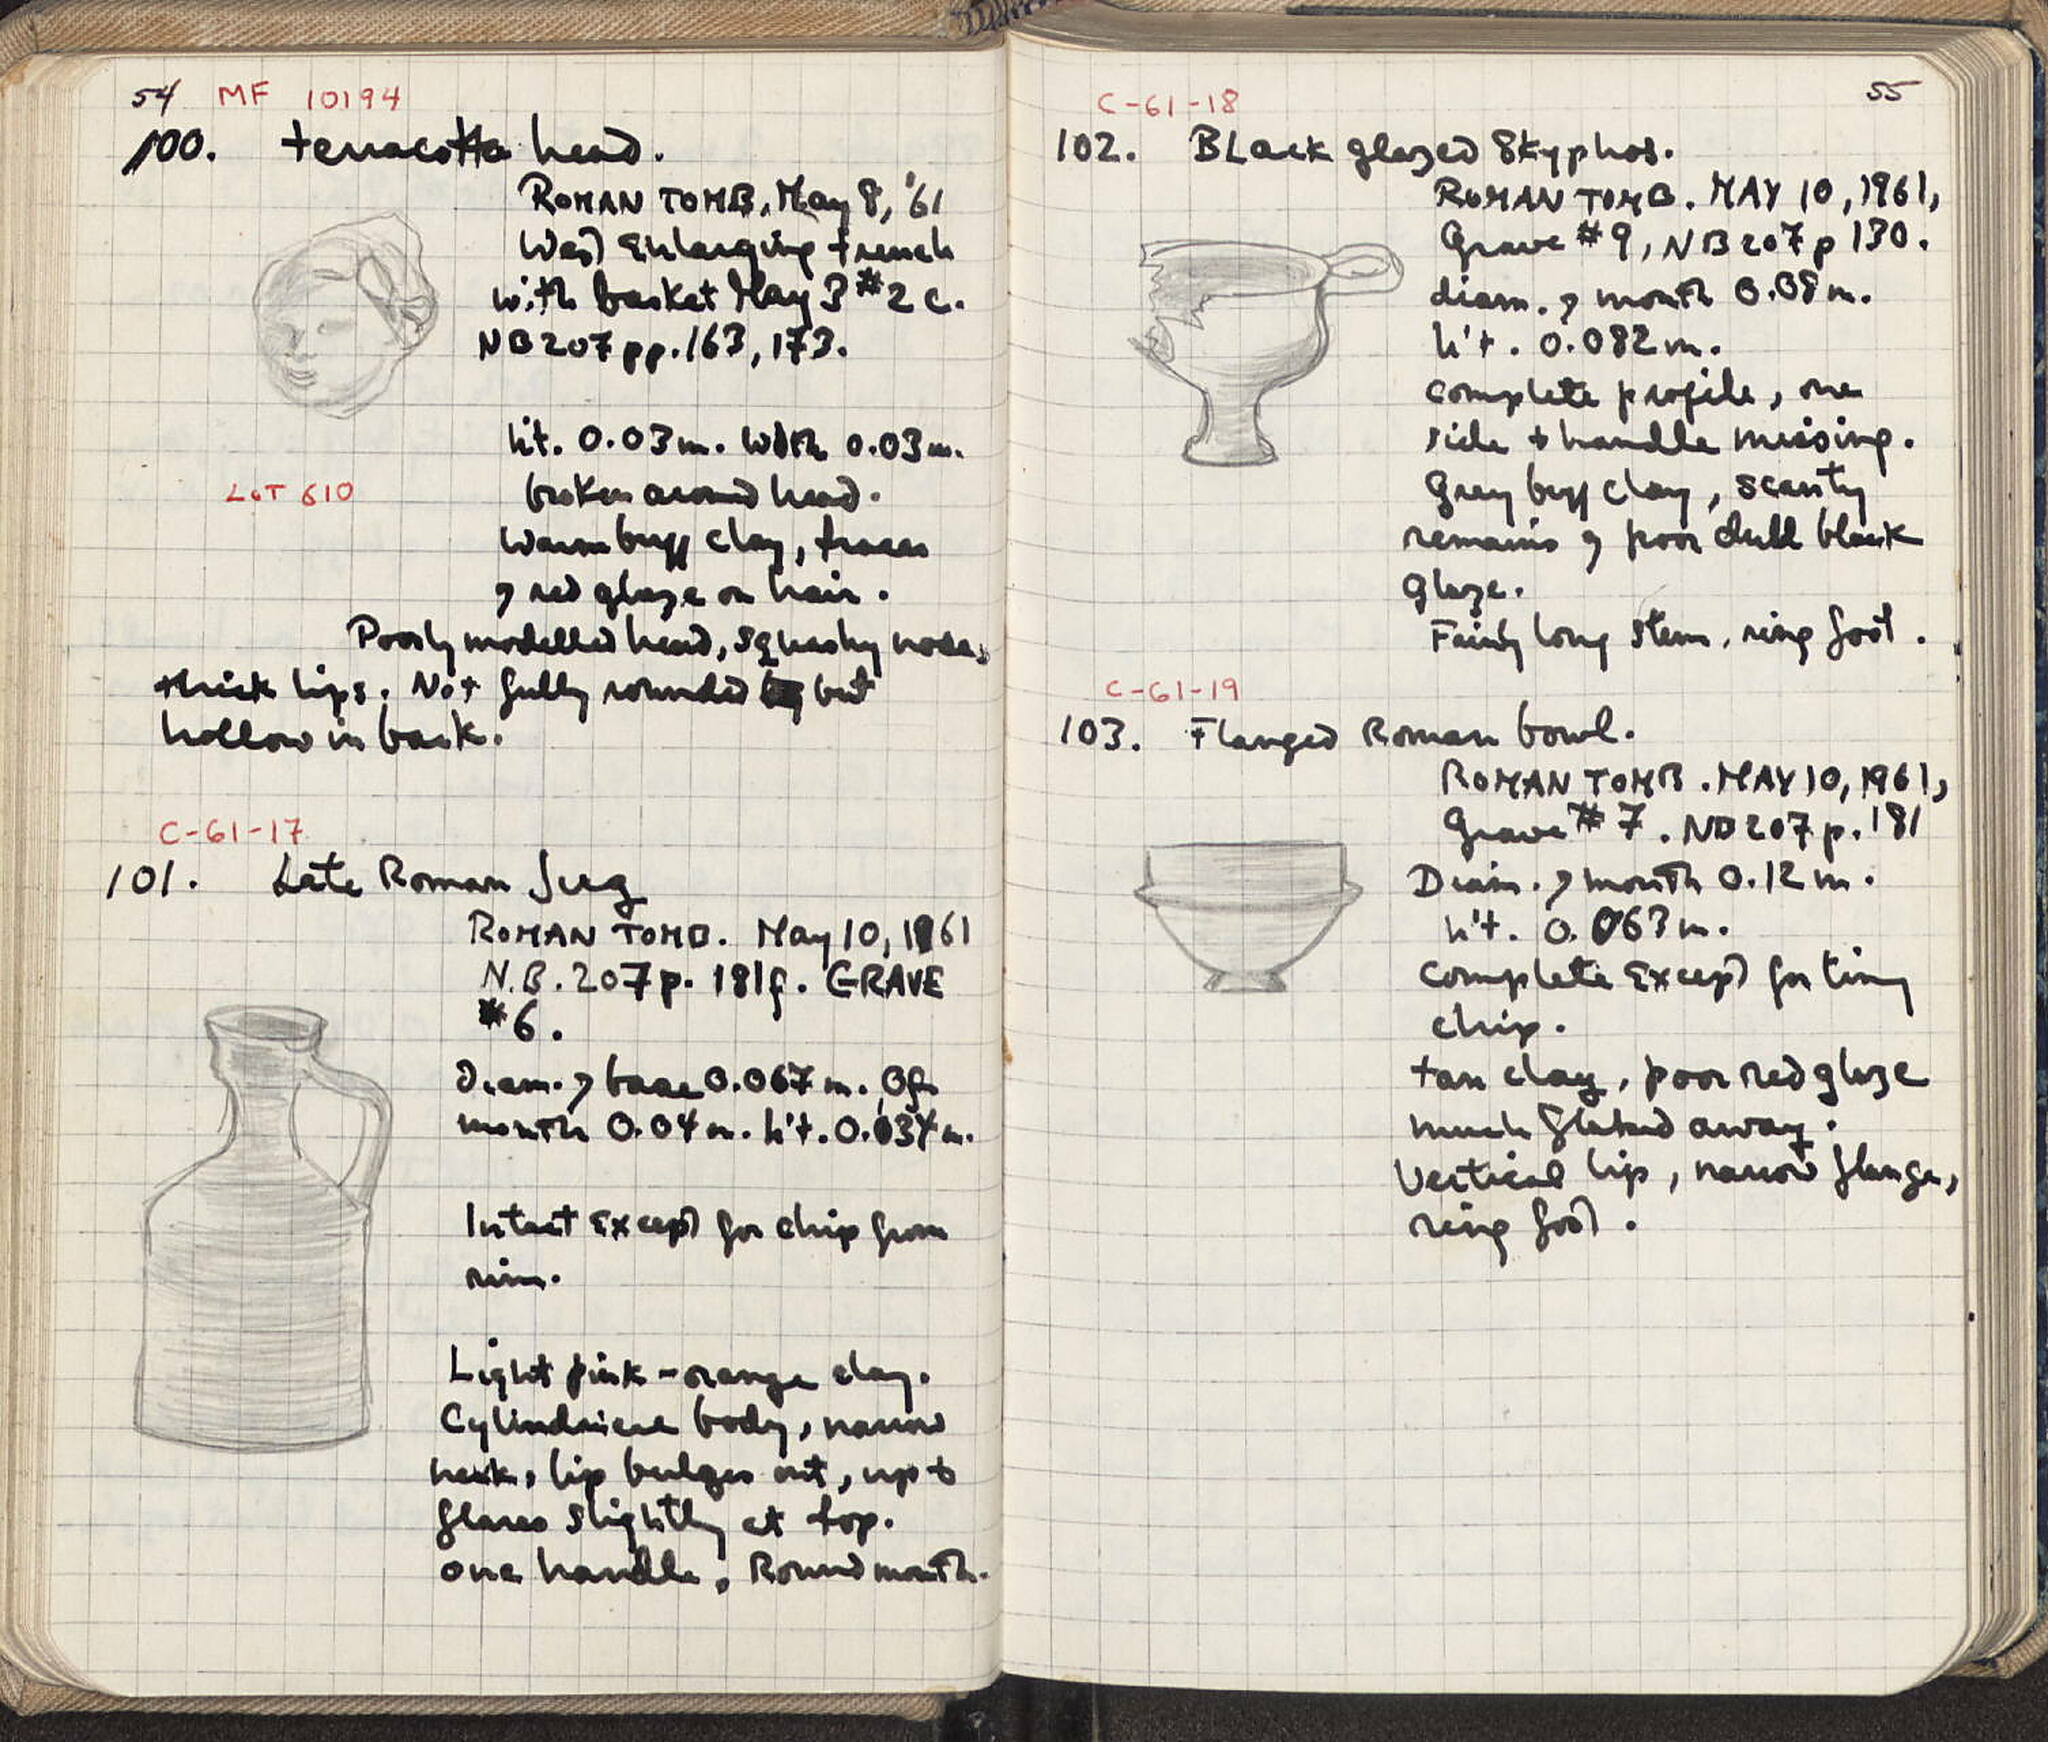 54 MF 10194
100. terracotta head.
ROMAN TOMB. May 8, '61
West Enlarging trench
with basket May 3 #2 c.
NB 207 pp. 163, 173.
h't. 0.03 m. width 0.03 m.
LOT 610
broken around head.
Warm buff clay, traces
of red glaze on hair.
Poorly modelled head, squashy nose,
thick lips. Not fully rounded but
hollow in back.
C-61-17
101. Late Roman Jug
ROMAN TOMB. May 10, 1961
N.B. 207 p. 181f. GRAVE
#6.
Diam. of base 0.067 m. Of
mouth 0.04 m. h't. 0.034 m.
Intact Except for chip from
rim.
Light pink-orange clay.
Cylindrical body, narrow
neck, lip bulges out, up +
flares slightly at top.
one handle. Round mouth.
55
C-61-18
102. Black glazed Skyphos.
ROMAN TOMB. MAY 10, 1961,
Grave #9, NB 207 p 130.
diam. of mouth 0.08 m.
h't. 0.082 m.
complete profile, one
side + handle missing.
Grey buff clay, scanty
remains of poor dull black
glaze.
Fairly long stem, ring foot.
C-61-19
103. Flanged Roman bowl.
ROMAN TOMB. MAY 10, 1961,
Grave #7. NB 207 p. 181
Diam. of mouth 0.12 m.
h't. 0.063 m.
complete Except for tiny
chip.
tan clay, poor red glaze
much flaked away.
Vertical lip, narrow flange,
ring foot.